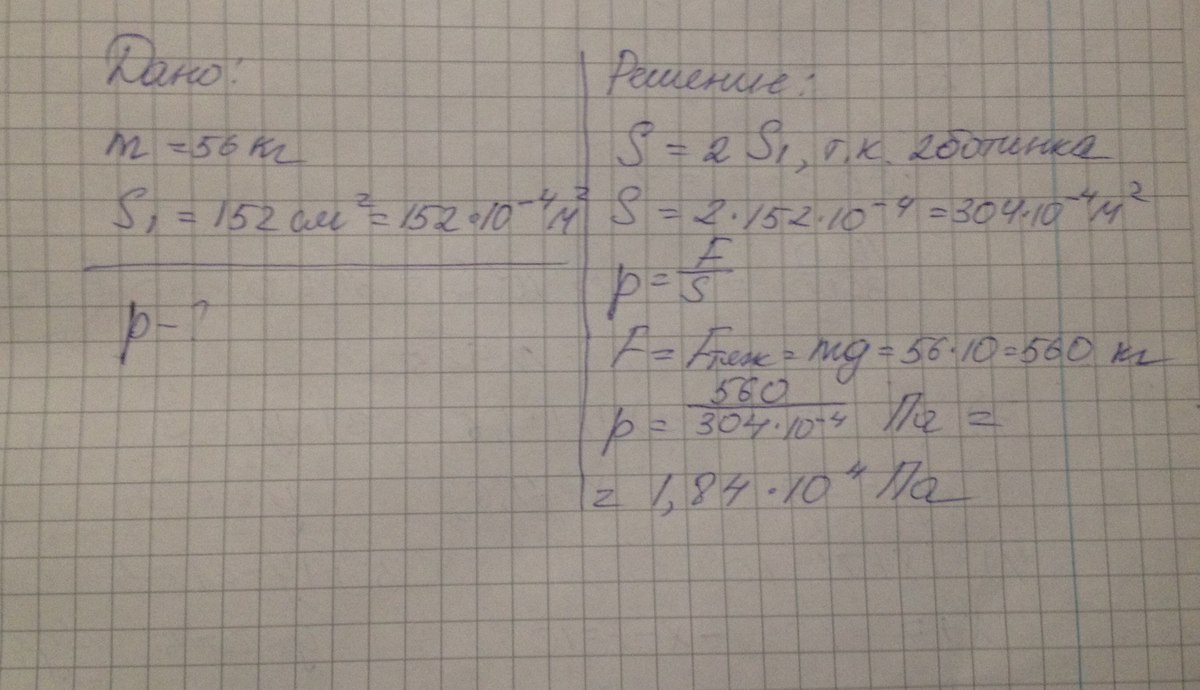 Дано:
m = 56 кг
S₁ = 152 см² = 152·10⁻⁴ м²
p - ?
Решение:
S = 2 S₁, т.к. 2 ботинка
S = 2·152·10⁻⁴ = 304·10⁻⁴ м²
p = F/S
F = Fтяж = mg = 56·10 = 560 кг
p = 560/304·10⁻⁴ Па =
= 1,84 · 10⁴ Па